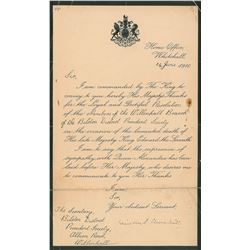 Home Office,
Whitehall.
14 June 1910
Sir,
I am commanded by The King to
convey to you hereby His Majesty's Thanks
for the Loyal and Dutiful Resolution
of the Members of the Willenhall Branch
of the Bilston District Provident Society
on the occasion of the lamented death of
His late Majesty King Edward the Seventh.
I am to say that the expression of
sympathy with Queen Alexandra has been
laid before Her Majesty, who desires me
to communicate to you Her Thanks
I am,
Sir,
Your obedient Servant,
Winston S. Churchill
The Secretary,
Bilston District
Provident Society,
Albion Road,
Willenhall